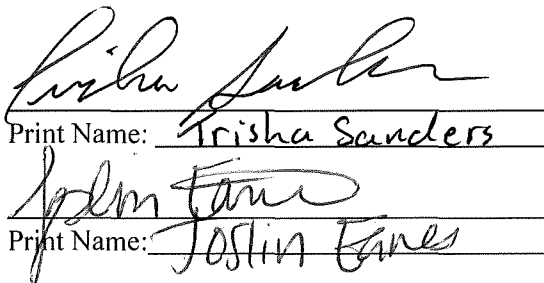 Trisha Sanders
Print Name: Trisha Sanders
Joslin Eanes
Print Name: Joslin Eanes